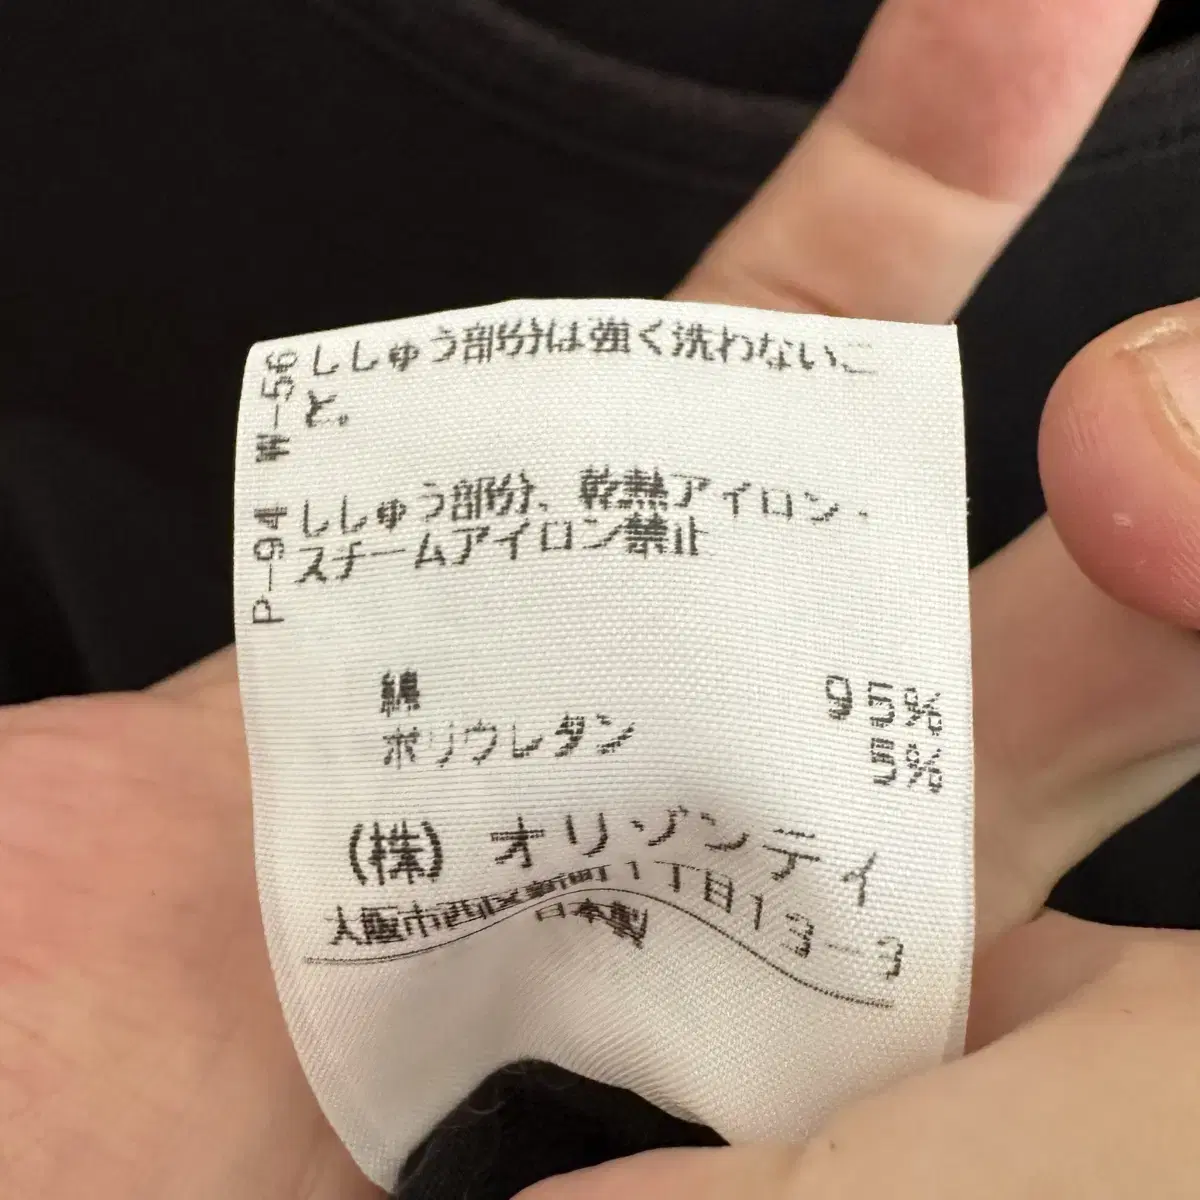 W-56 ししゅう部分は強く洗わないこ
と。
P-94 ししゅう部分、乾熱アイロン・
スチームアイロン禁止
綿 95%
ポリウレタン 5%
(株) オリゾンティ
大阪市西区新町1丁目13-3
日本製